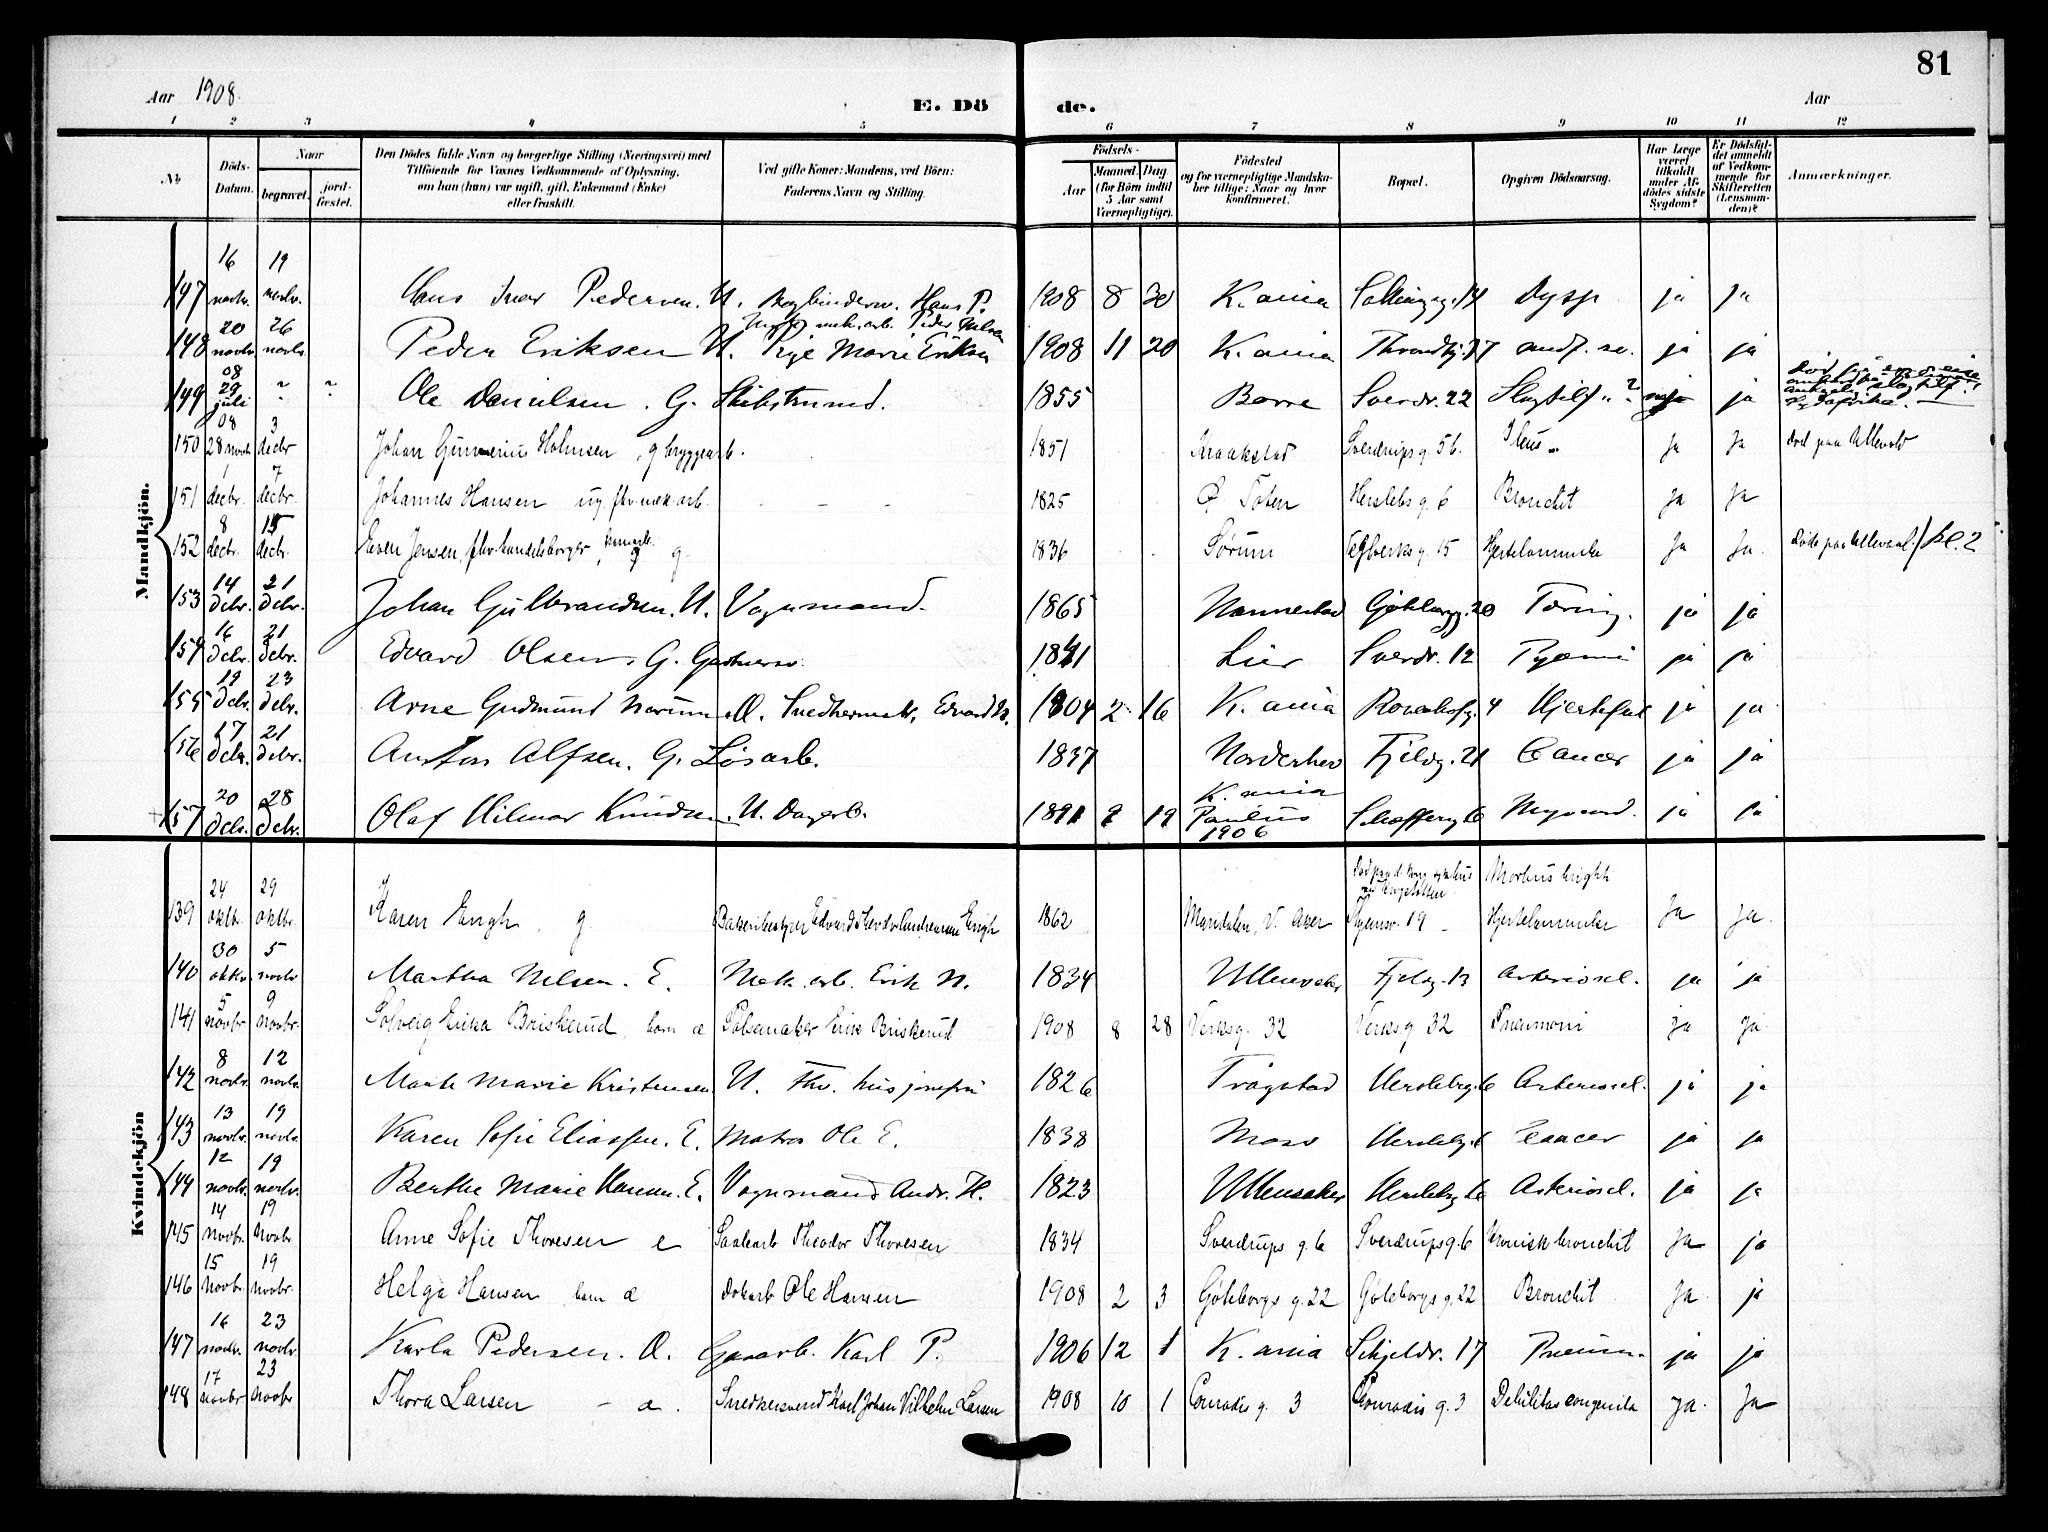 81
Aar 1908.
E. Dö de.
Aar
1 2 3 4 5 6 7 8 9 10 11 12
No
Döds-Datum.
Naar
begravet.
jord-fæstet.
Den Dödes fulde Navn og borgerlige Stilling (Næringsvei) med Tilföiende for Voxnes Vedkommende af Oplysning, om han (hun) var ugift, gift, Enkemand (Enke) eller fraskilt.
Ved gifte Koner: Mandens, ved Börn: Faderens Navn og Stilling.
Födsels-
Aar
Maaned. Dag (for Börn indtil 5 Aar samt Værnepligtige).
Födested og for værnepligtige Mandskaber tillige: Naar og hvor konfirmeret.
Bopæl.
Opgiven Dödsaarsag.
Har Læge været tilkaldt under Afdödes sidste Sygdom?
Er Dödsfaldet anmeldt af Vedkommende for Skifteretten (Lensmanden)?
Anmærkninger.
Mandkjön.
147 16 novbr. 19 novbr. Hans Ivar Pedersen. U. Bogbindersv. Hans P. 1908 8 30 K.ania 14 Dysp ja ja
148 20 novbr. 26 novbr. Peder Eriksen U. mek. arb. Peder Nilsen Pige Marie Eriksen 1908 11 20 K.ania ja ja
149 08 29 juli Ole Danielsen. G. Skibstømmd. 1855 Borre Sverdr. 22 ja
150 08 28 novbr 3 decbr Johan Gunnerius Holmsen, g bryggearb. 1851 Kraakstad Sverdrups g. 56. Ileus Ja Ja Död paa Ullevold
151 1 decbr. 7 decbr. Johannes Hansen ug. fhv. mek. arb. 1825 Ø Toten Herslebs g. 6 Bronchit Ja Ja
152 8 decbr. 15 decbr. Even Jensen, fhv. handelsborger, g 1836 Sørum Teglverks g. 15 Hjertelammelse Ja Ja. Døde paa Ullevaal. / kl. 2
153 14 Decbr. 21 Decbr. Johan Gulbrandsen. U. Vognmand. 1865 Nannestad Gøteborgg. 20 Tæring. ja ja
154 16 Decbr. 21 Decbr. Edvard Olsen, G. Gartnersv. 1841 Lier Sverdr. 12 Pyæmi ja ja
155 19 Decbr. 23 Decbr. Arne Gudmund Norum Æ. Snedkermst. Edvard N. 1904 2 16 K.ania Rosenhofg. 4 Hjertefeil ja ja
156 17 Decbr. 21 Decbr. Anton Alfsen. G. Løsarb. 1837 Norderhov Fjeldg. 21 Cancer ja ja
157 20 Decbr. 28 Decbr. Olaf Hilmar Knudsen. U. Dagarb. 1891 2 19 K.ania Paulus 1906 6 Myocard. ja ja
Kvindekjön
139 24 oktbr. 29 oktbr. Karen Engh, g. Bakeribestyrer Edvard Theodor Andreassen Engh 1862 Maridalen, V. Aker 19 Morbus brighti Hjertelammelse Ja Ja.
140 30 oktbr 5 novbr Martha Nilsen. E. Mek. arb. Erik N. 1834 Ullensaker Fjeldg. 13 Arteriosel. ja ja
141 5 novbr 9 novbr. Solveig Erika Briskerud, barn æ Pølsemaker Erik Briskerud 1908 8 28 Verksg. 32 Verksg 32 Pneumoni Ja Ja.
142 8 novbr. 12 novbr. Marte Marie Kristensen U. Fhv. husjomfru 1826 Trøgstad Herslebsg. 6 Arteriosel. ja ja
143 13 novbr. 19 novbr. Karen Sofie Eliassen. E. Matros Ole E. 1838 Moss Herslebsg. 6 Cancer ja ja
144 12 novbr. 19 novbr. Berthe Marie Hansen. E. Vognmand Andr. H. 1823 Ullensaker Herslebsg 6 Arteriosel. ja ja
145 14 novbr. 19 Novbr. Anne Sofie Thoresen e Theodor Thoresen 1834 Sverdrups g. 6 Sverdrups g. 6 Kronisk bronchit Ja ja
146 15 novbr 19 novbr. Helga Hansen barn æ Ole Hansen 1908 2 3 Göteborgs g. 22 Göteborgs g. 22 Bronchit Ja ja
147 16 novbr. 23 novbr. Karla Pedersen. Æ. Gasarb. Karl P. 1906 12 1 K.ania Schjeldr. 17 Pneum. ja ja
148 17 novbr 23 novbr Thora Larsen - æ. Snedkersvend Karl Johan Vilhelm Larsen 1908 10 1 Conradis g. 3 Conradis g. 3 Debilitas congenita Ja. Ja